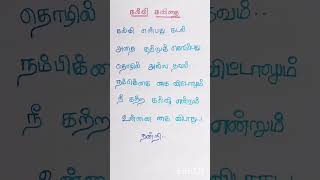 கல்வி கவிதை
கல்வி என்பது கடல்
அதை கற்றுக் கொள்வது
தொழில் அல்ல தவம்
நம்பிக்கை கை விட்டாலும்
நீ கற்ற கல்வி என்றும்
உன்னை கை விடாது..!
நன்றி..